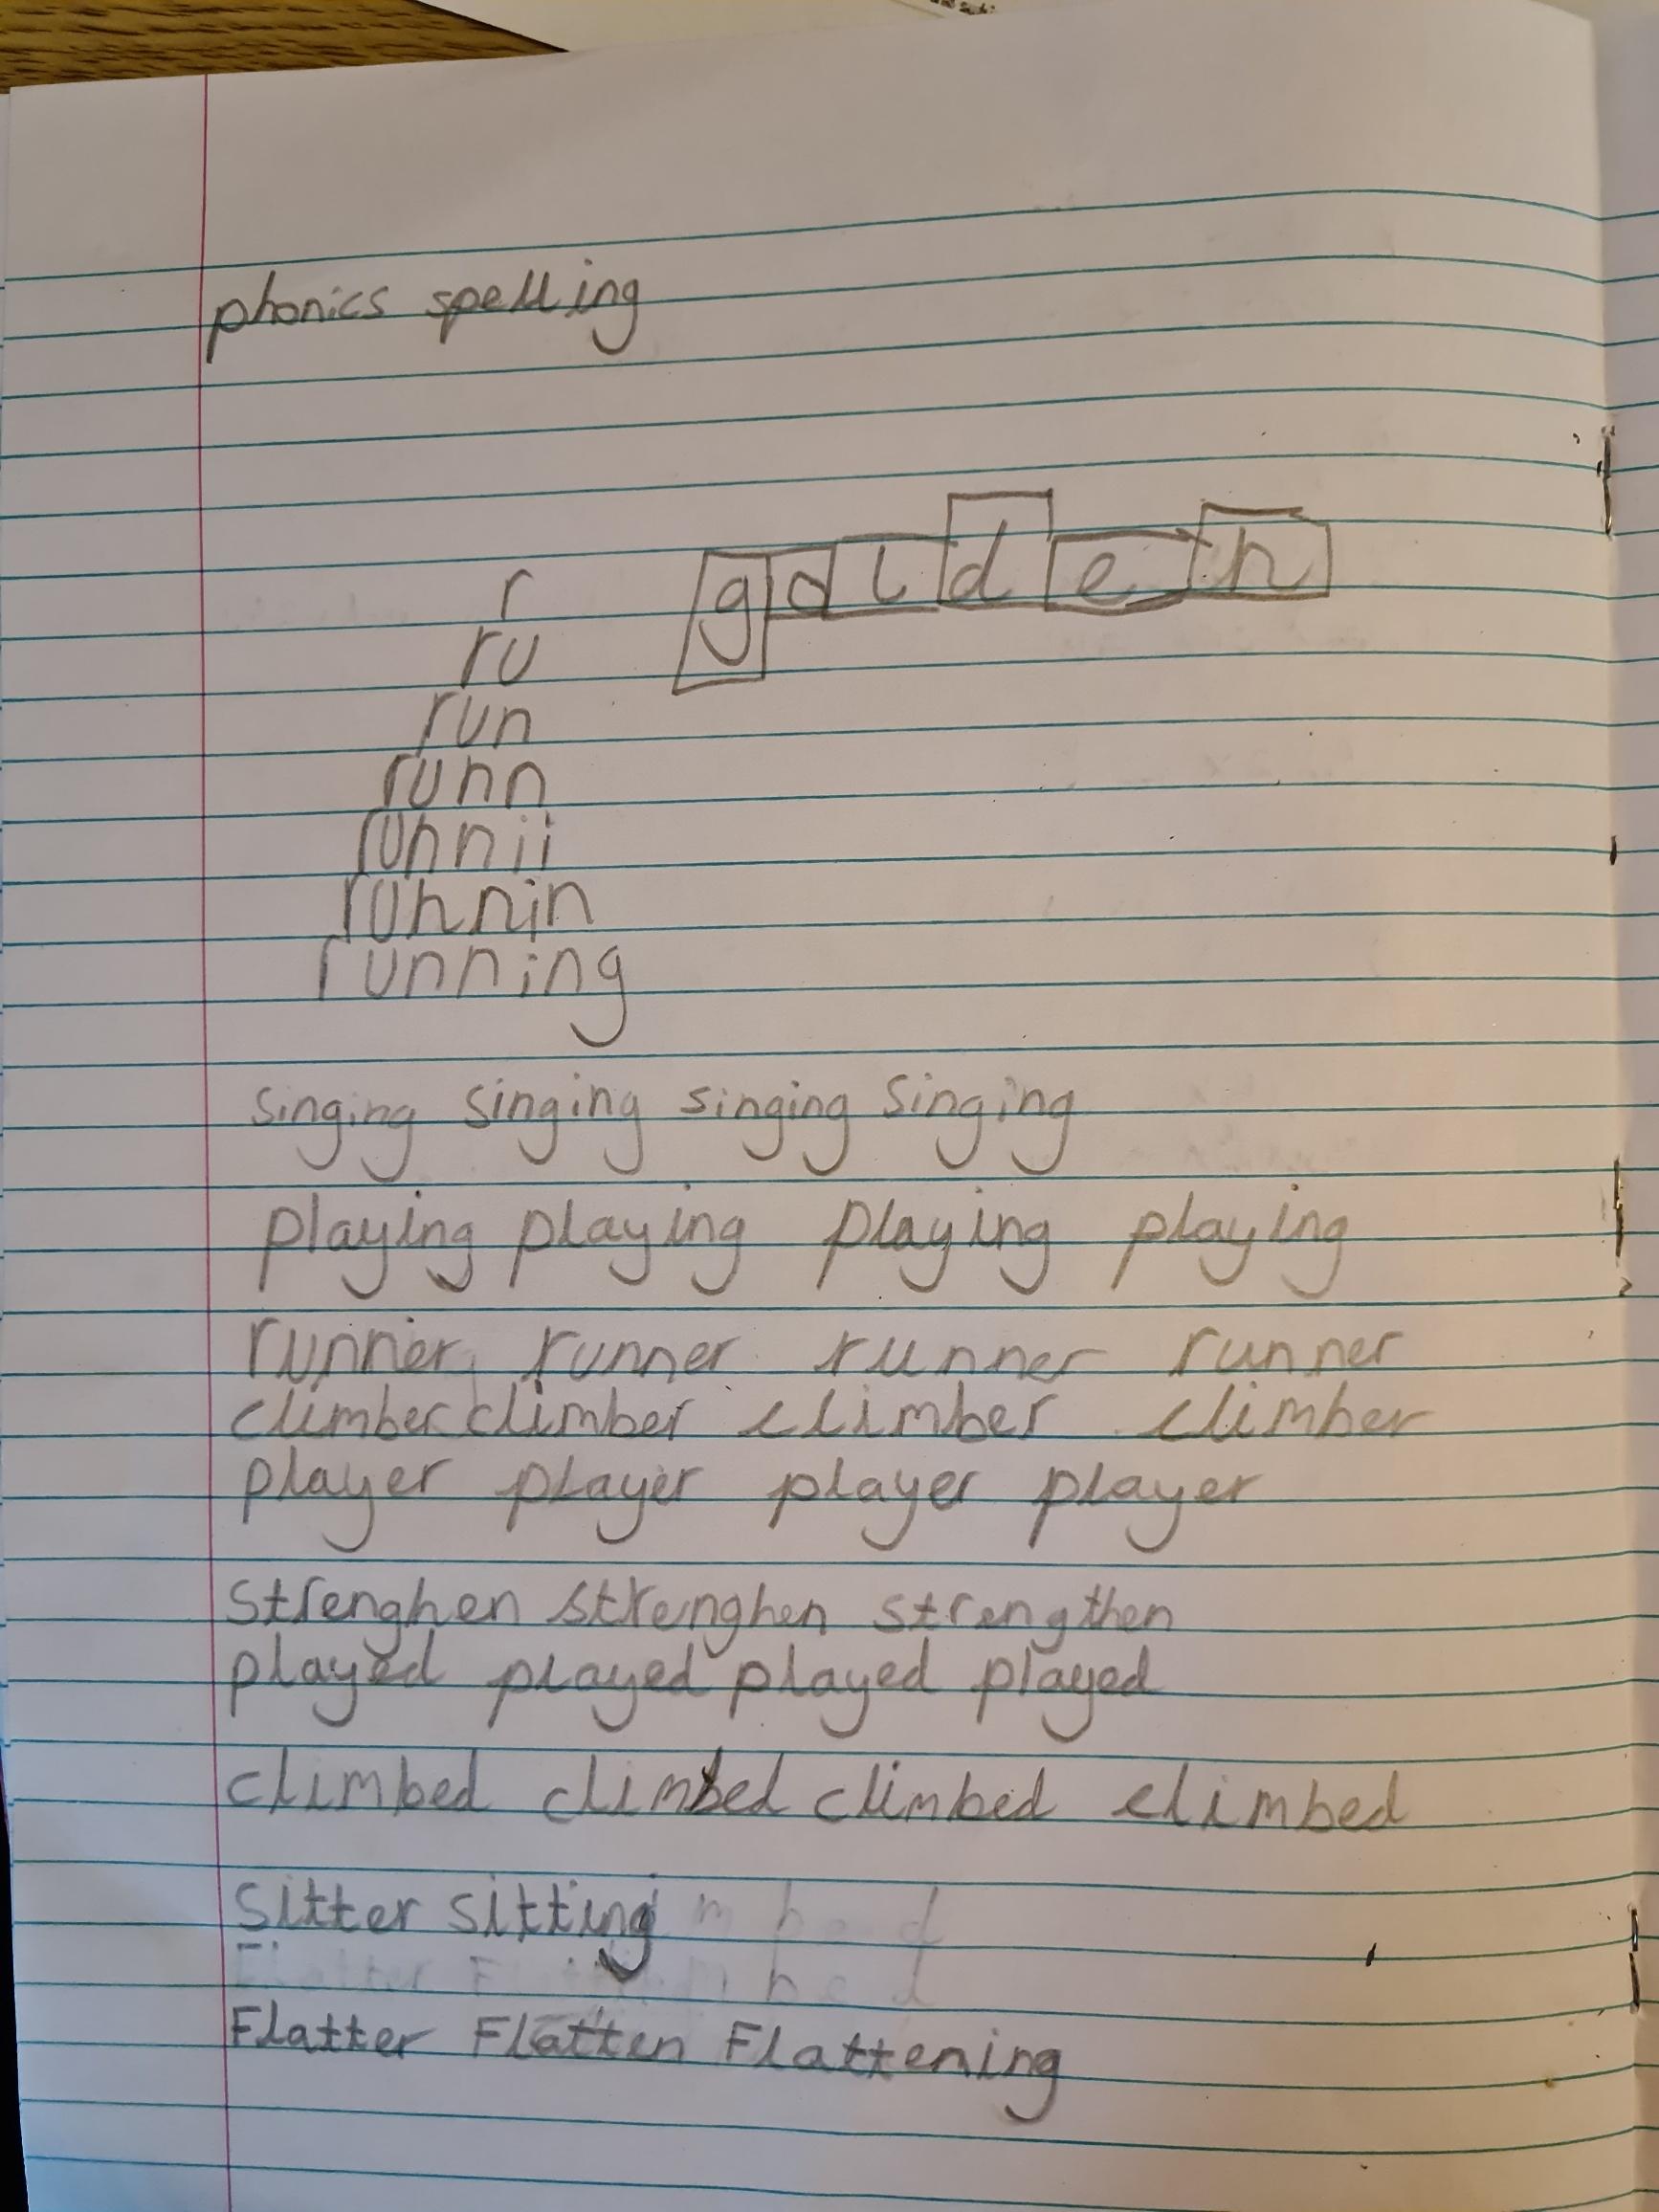 phonics spelling
r
ru
run
runn
runnii
runnin
running
singing singing singing singing
playing playing playing playing
runner runner runner runner
climber climber climber climber
player player player player
strenghen strenghen strengthen
played played played played
climbed climbed climbed climbed
Sitter sitting
Flatter Flatten Flattening